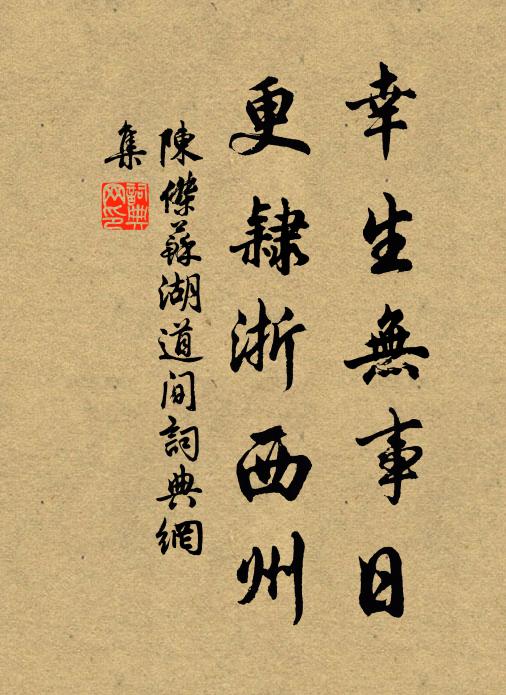 幸生無事日
更隸浙西州
陳傑蘇湖道間詞典網
集
詞典網印